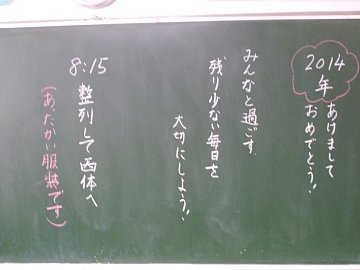 2014年
あけまして
おめでとう!
みんなと過ごす
残り少ない毎日を
大切にしよう!
8:15 整列して西体へ
(あたたかい服装です)